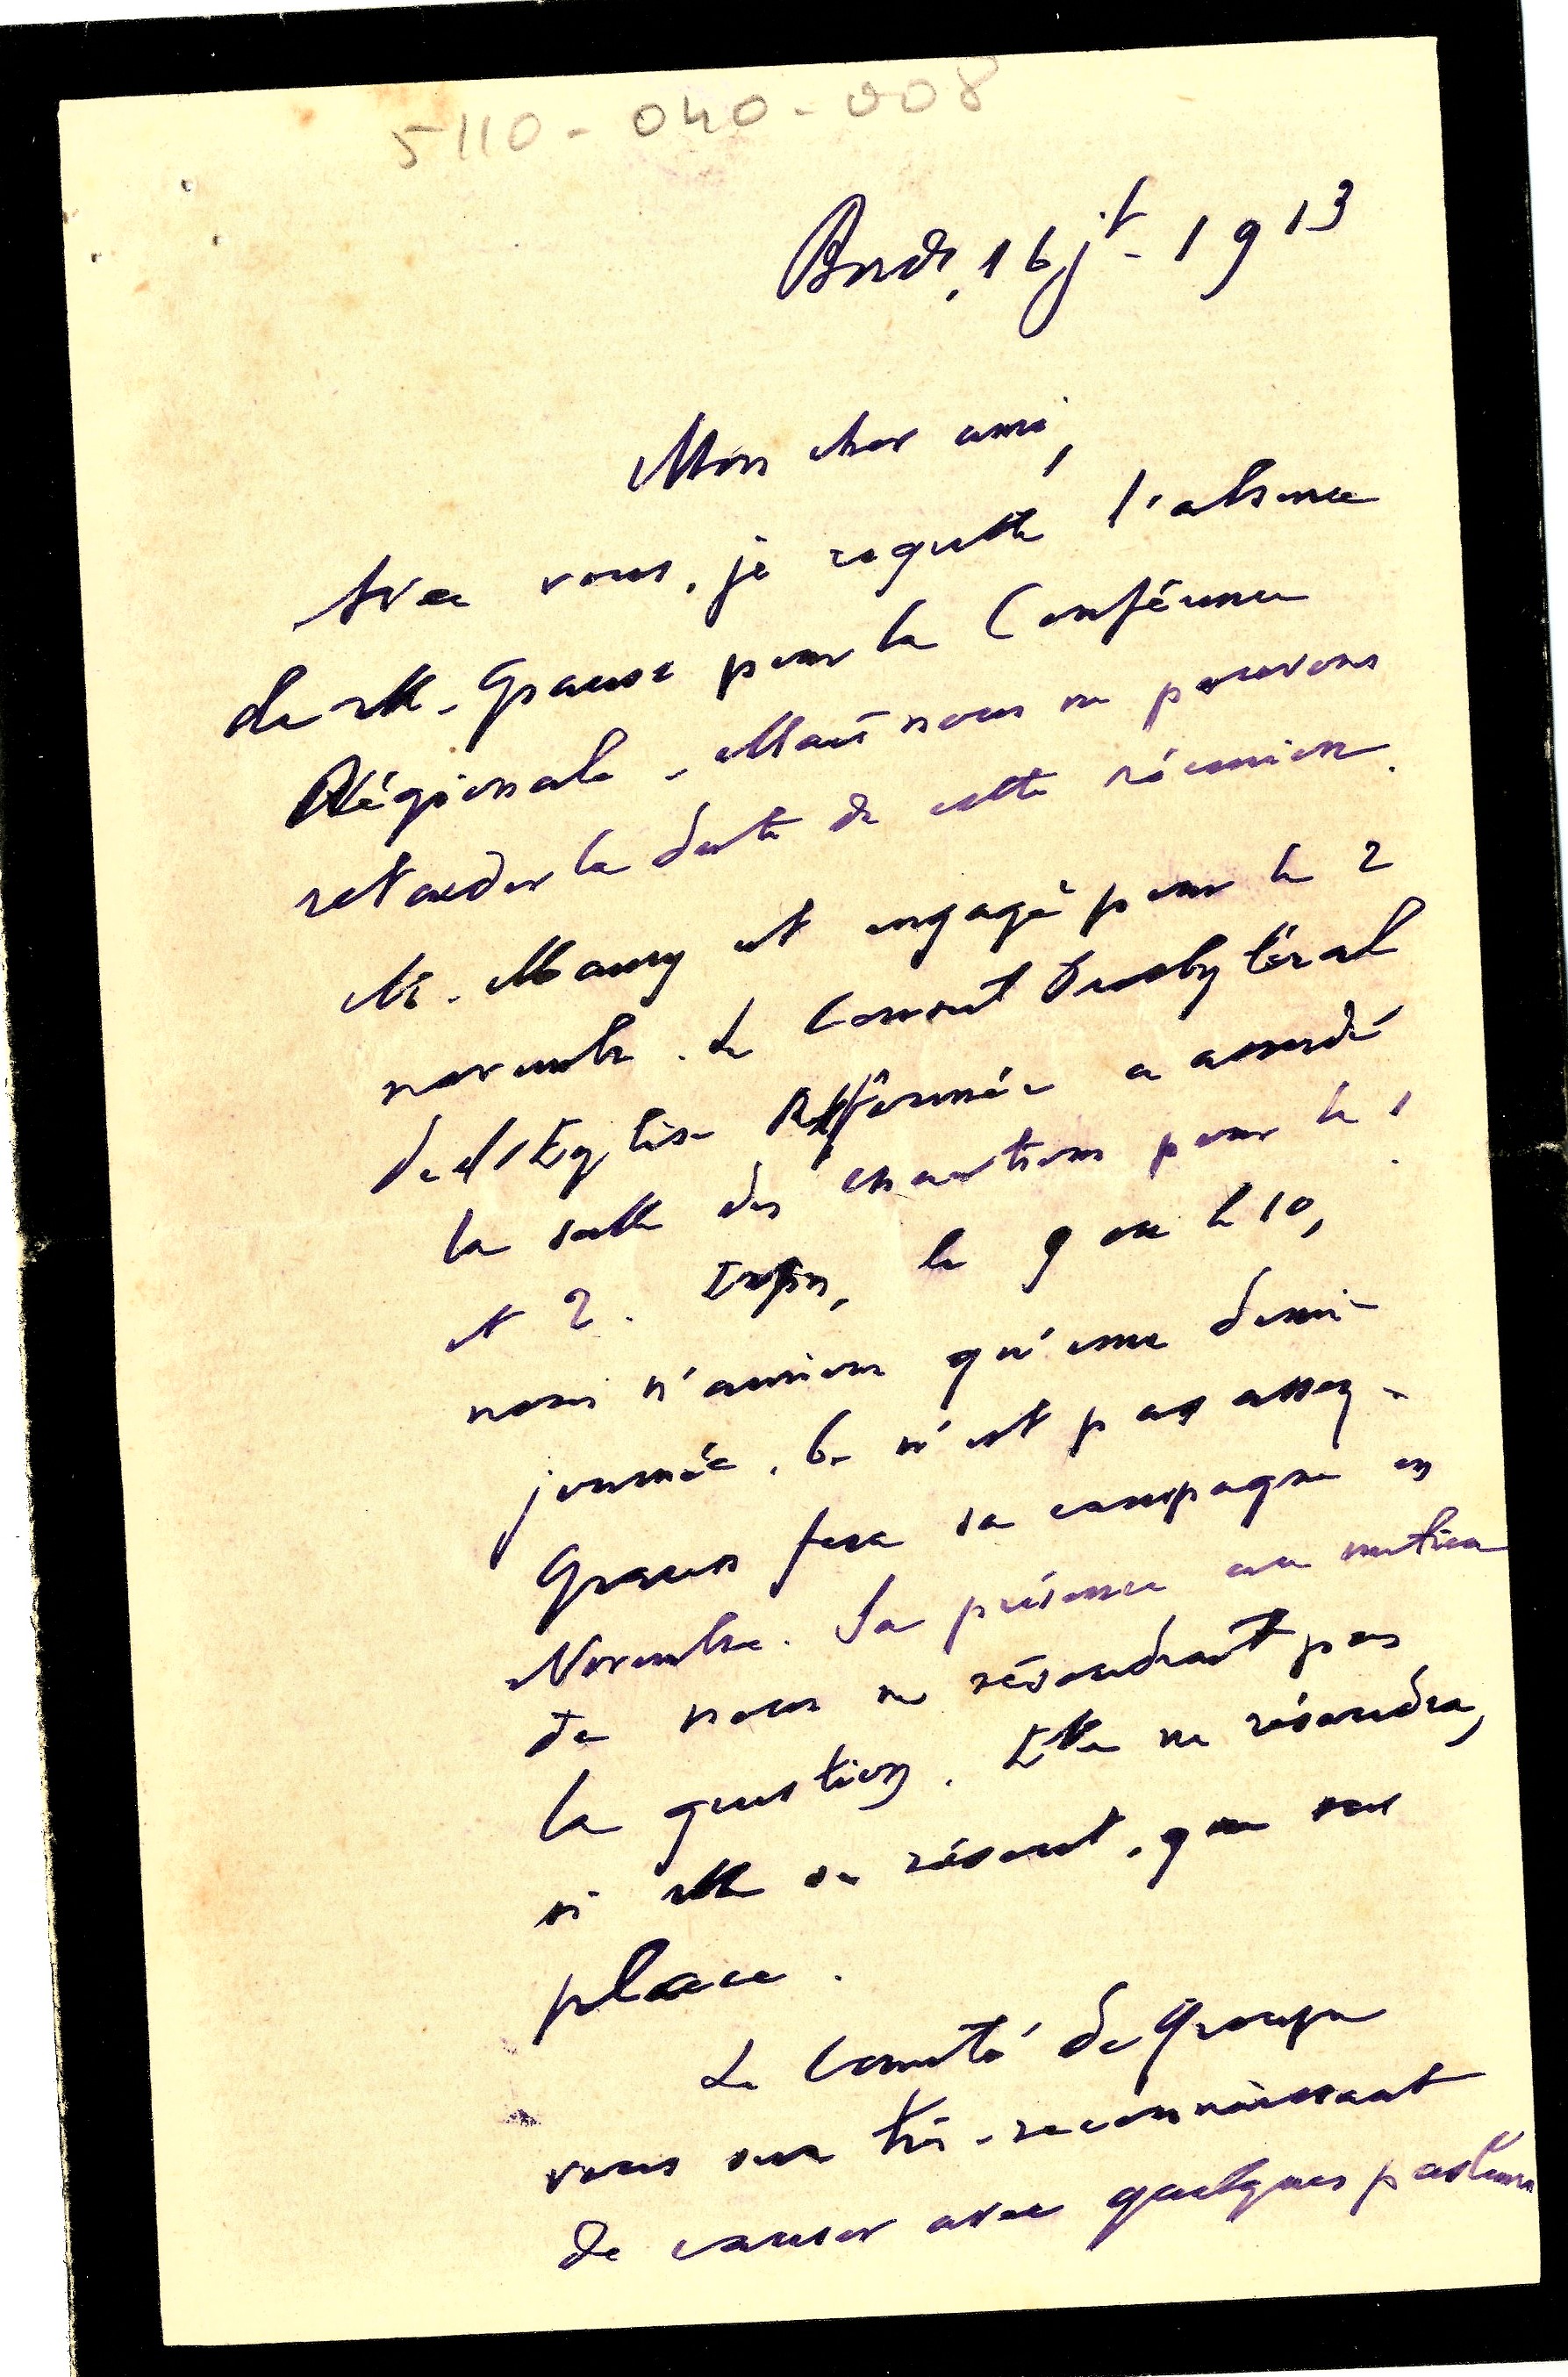 5110-040-008
Bordx, 16 jt - 1913
Mon cher ami,
Avec vous, je regrette l'absence
de M. Grauss pour la Conférence
Régionale. Mais nous ne pouvons
retarder la date de cette réunion.
Mr. Maury est engagé pour le 2
novembre. Le Conseil Presbytéral
de l'Eglise Réformée a accordé
la salle des pour le 1
et 2. Enfin, le 9 ou le 10,
nous n'aurions qu'une demi-
journée. Ce n'est pas assez.
Grauss fera sa campagne en
Novembre. Sa présence au milieu
de nous ne résoudrait pas
la question. Elle ne résoudra,
si elle se résout, que sur
place.
Le Comité de Groupe
vous sera très-reconnaissant
de causer avec quelques pasteurs